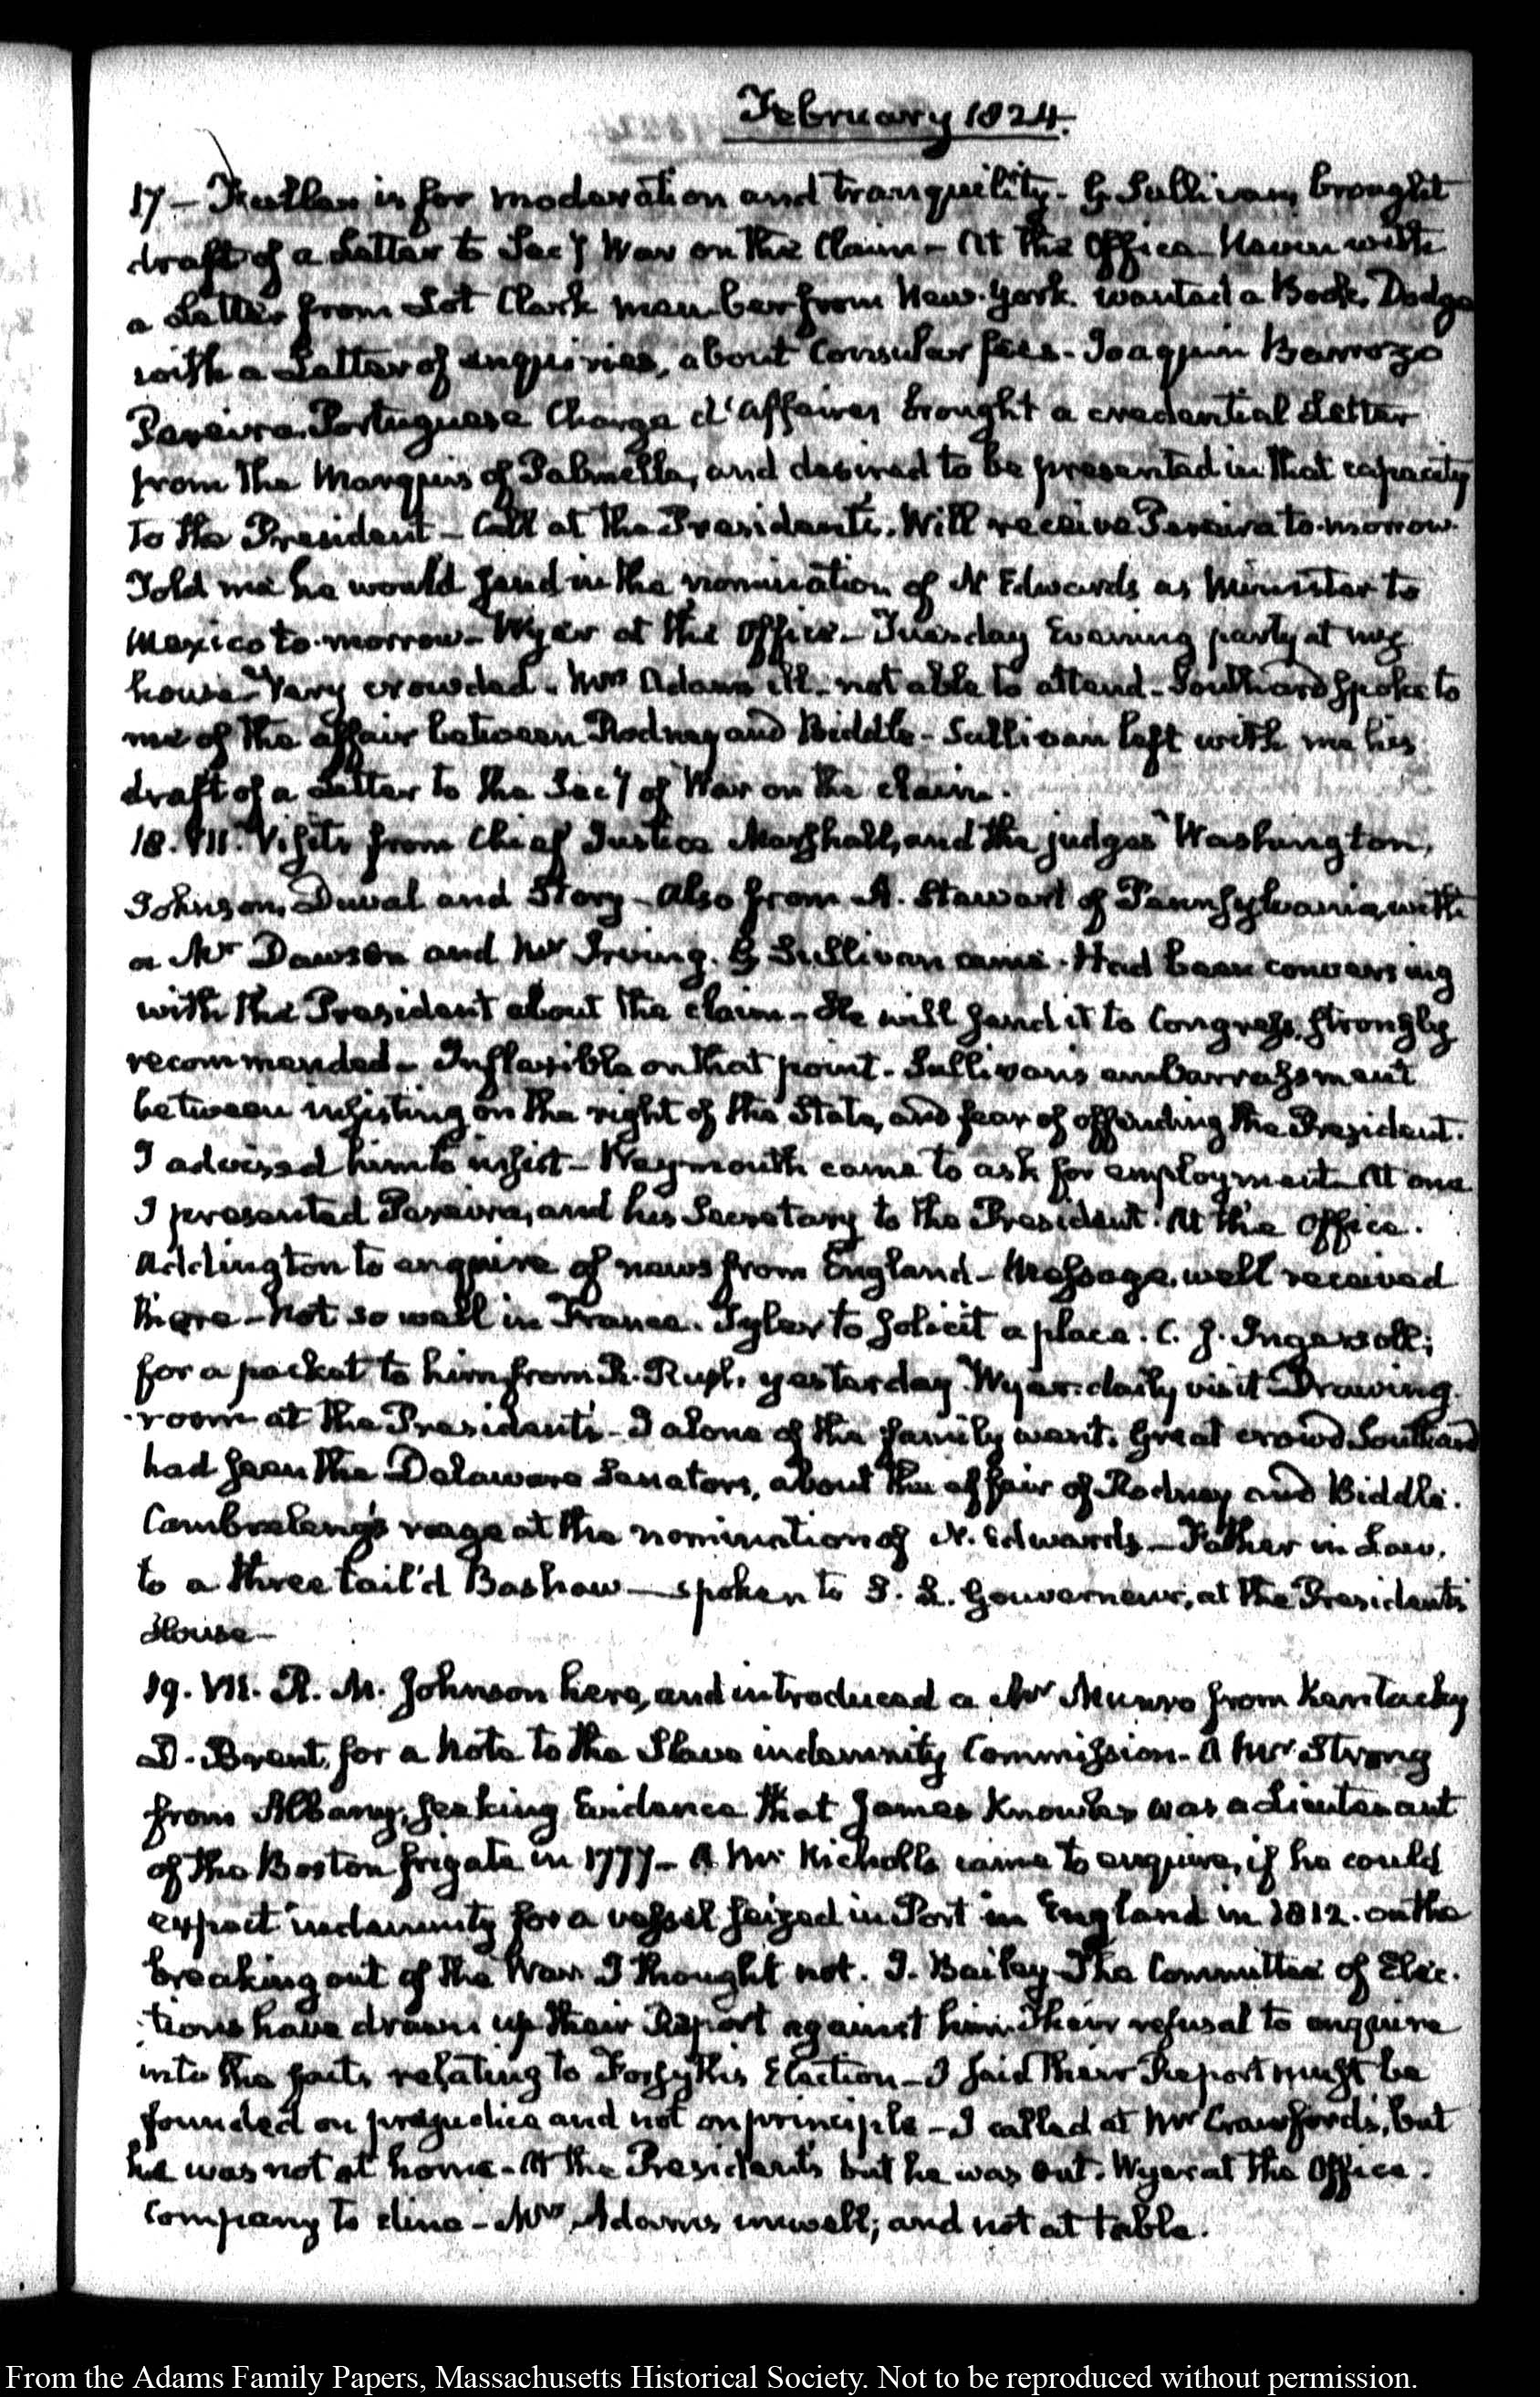 February 1824.
17 – Fuller is for moderation and tranquility – G. Sullivan, brought
draft of a Letter to Secy War on the Claim – At the Office – Haven with
a Letter from Lot Clark member from New-York. wanted a Book, Dodge
with a Letter of enquiries, about Consular fees – Joaquim Barrozo
Pereira. Portuguese Charge d'affaires brought a credential Letter
from the Marquis of Palmella, and desired to be presented in that capacity
to the President – Call at the President's. Will receive Pereira to-morrow.
Told me he would send in the nomination of N Edwards as Minister to
Mexico to-morrow – Wyer at the Office – Tuesday Evening party at my
house – Very crowded. Mrs Adams ill – not able to attend – Southard spoke to
me of the affair between Rodney and Biddle – Sullivan left with me his
draft of a Letter to the Secy of War on the claim.
18. VII. Visits from Chief Justice Marshall, and the judges Washington,
Johnson, Duval and Story – Also from A. Stewart of Pennsylvania, with
a Mr Dawson and Mr Irving. G Sullivan came. Had been conversing
with the President about the claim – He will send it to Congress, strongly
recommended – Inflexible on that point – Sullivan's embarrassment
between insisting on the right of the State, and fear of offending the President.
I advised him to insist – Weymouth came to ask for employment – At one
I presented Pereira, and his Secretary to the President. At the Office.
Addington to enquire of news from England – Message, well received
there – Not so well in France. Tyler to solicit a place. C. J. Ingersoll;
for a packet to him from R. Rush. yesterday. Wyer. daily visit – Drawing
room at the President's – I alone of the family went. Great crowd Southard
had seen the Delaware Senators, about the affair of Rodney and Biddle.
Cambreleng's rage at the nomination of N. Edwards – Father in Law,
to a three tail'd Bashaw – spoken to S. L. Gouverneur, at the Presidents
House –
19. VII. R. M. Johnson here, and introduced a Mr Munro from Kentucky
D. Brent, for a Note to the Slave indemnity Commission – A Mr Strong
from Albany, seeking Evidence that James Knowles was a Lieutenant
of the Boston frigate in 1777 – A Mr Nicholls came to enquire, if he could
expect indemnity for a vessel seized in Port in England in 1812. on the
breaking out of the War. I thought not. J. Bailey – The Committee of Elec-
tions have drawn up their Report against him. Their refusal to enquire
into the facts relating to Forsyth's Election – I said their Report must be
founded on prejudice and not on principle – I called at Mr Crawford's, but
he was not at home – At the President's but he was out. Wyer at the Office.
Company to dine – Mrs Adams unwell; and not at table.
From the Adams Family Papers, Massachusetts Historical Society. Not to be reproduced without permission.